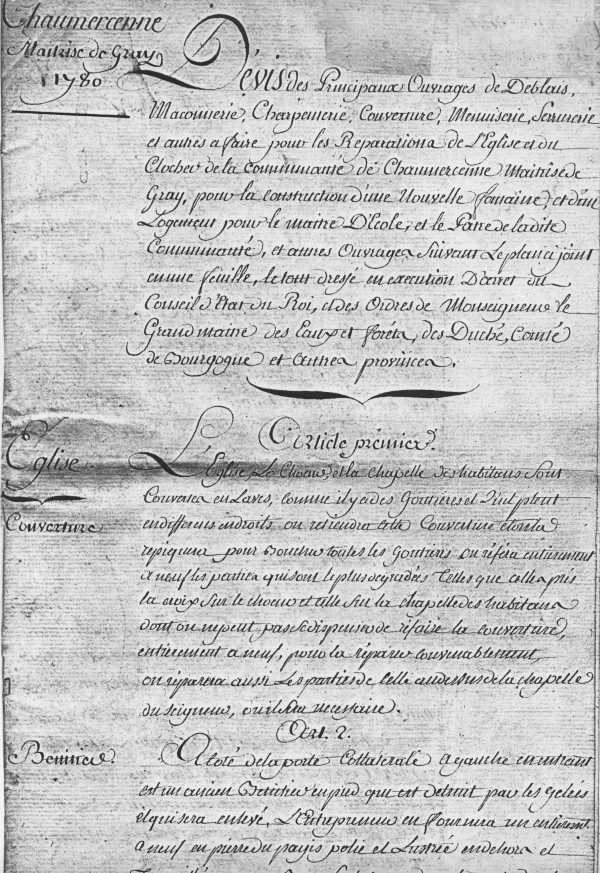 Chaumercenne
Maitrise de Gray
1780
Dévis des Principaux Ouvrages de Deblais,
Maconnerie, Charpenterie, Couverture, Menuiserie, Serrurerie
et autres a faire pour les Reparations de L'Eglise et du
Clocher de la Communauté de Chaumercenne Maitrise de
Gray, pour la construction d'une Nouvelle fontaine, et d'un
Logement pour le maitre D'Ecole, et le Patre de la dite
Communauté, et autres Ouvrages Suivant Le plan ci joint
en une feuille, le tout dressé en execution D'arret du
Conseil d'Etat du Roi, et des Ordres de Monseigneur le
Grand maitre des Eaux et forets, des Duché, Comté
de Bourgogne et autres provinces.
Article premier.
Eglise
L'Eglise Le Choeur et la chapelle des habitans sont
Couverture
Couverts en Laves, comme il y a des Goutieres et qu'il pleut
en differens endroits on retiendra cette Couverture et on la
repiquera pour Boucher toutes les Goutieres on réfera entierement
a neuf les parties qui sont le plus dégradées telles que celle près
la croix sur le choeur et celle sur la chapelle des habitans
dont on ne peut pas se dispenser de réfaire la couverture,
entierement a neuf, pour la réparer convenablement,
on réparera aussi Les parties de celle au dessus de la chapelle
du seigneur, ou il sera necessaire.
Art. 2.
Benitier.
A coté de la porte Collaterale a gauche en entrant
est un ancien Benitier en pied qui est détruit par les gelées
et qui sera enlevé, L'Entrepreneur en fournira un entierement
a neuf en pierre du pays polie et Lustrée en dehors et